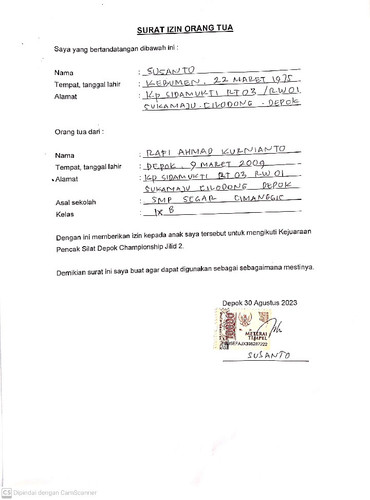 SURAT IZIN ORANG TUA
Saya yang bertandatangan dibawah ini :
Nama : SUSANTO
Tempat, tanggal lahir : KEBUMEN, 22 MARET 1975
Alamat : Kp SIDAMUKTI RT 03 /RW 01
SUKAMAJU - CILODONG - DEPOK
Orang tua dari :
Nama : RAFI AHMAD KURNIANTO
Tempat, tanggal lahir : DEPOK, 9 MARET 2009
Alamat : Kp SIDAMUKTI RT 03 RW 01
SUKAMAJU CILODONG DEPOK
Asal sekolah : SMP SEGAR CIMANGGIS
Kelas : IX.B
Dengan ini memberikan izin kepada anak saya tersebut untuk mengikuti Kejuaraan
Pencak Silat Depok Championship Jilid 2.
Demikian surat ini saya buat agar dapat digunakan sebagai sebagaimana mestinya.
Depok 30 Agustus 2023
10000
METERAI
TEMPEL
SUSANTO
CS Dipindai dengan CamScanner